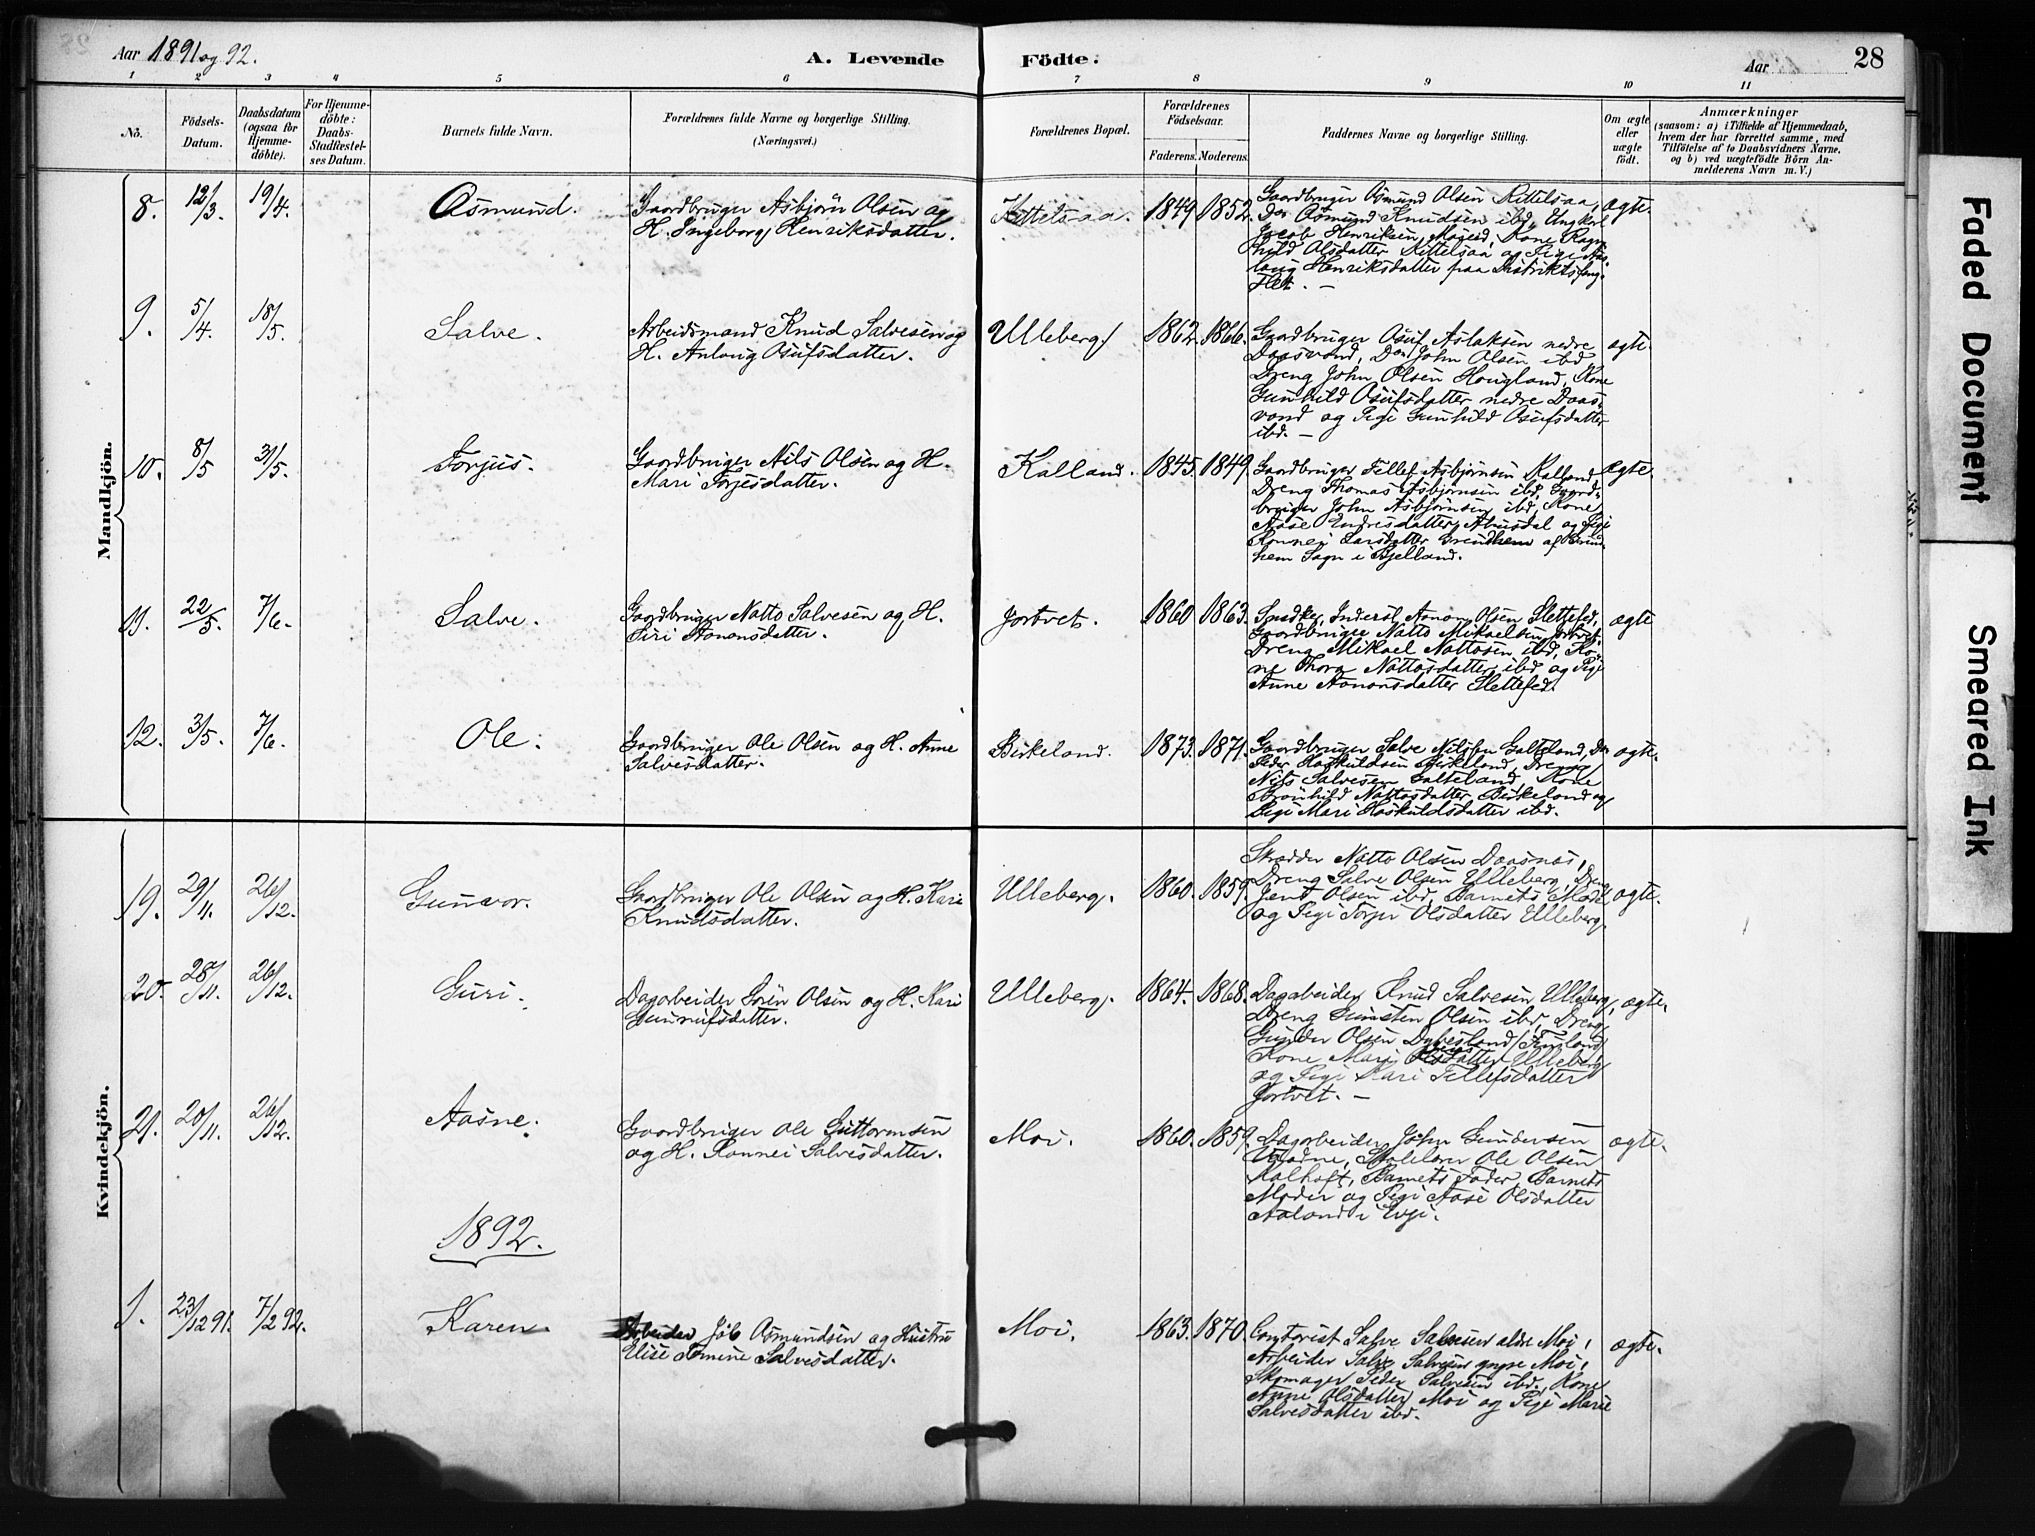 Aar 1891 og 92.
A. Levende Födte.
Aar
28
1 2 3 4 5 6 7 8 9 10 11
No.
Födsels-
Datum.
Daabsdatum
(ogsaa for
Hjemme-
döbte).
For Hjemme-
döbte:
Daabs-
Stadfæstel-
ses Datum.
Barnets fulde Navn.
Forældrenes fulde Navne og borgerlige Stilling.
(Næringsvei.)
Forældrenes Bopæl.
Forældrenes
Födselsaar.
Faderens.
Moderens.
Faddernes Navne og borgerlige Stilling.
Om ægte
eller
uægte
födt.
Anmærkninger
(saasom: a) i Tilfælde af Hjemmedaab,
hvem der har forrettet samme, med
Tilföielse af to Daabsvidners Navne.
og b) ved uægtefödte Börn An-
melderens Navn m. V.)
Mandkjön.
8. 12/3. 19/4. Osmund.
Gaardbruger Asbjörn Olsen og
H. Ingeborg Henriksdatter.
Kittelsaa. 1849 1852.
Gaardbruger Osmund Olsen Kittelsaa,
Do Osmund Knudsen ibd, Ungkarl
Jacob Henriksen Moseid, Kone Ragn-
hild Olsdatter Kittelsaa og Pige As-
laug Henriksdatter paa Distriktsfæng-
slet. —
ægte.
9. 5/4. 18/5. Salve.
Arbeidsmand Knud Salvesen og
H. Anlaug Osufsdatter.
Ulleberg 1862. 1866.
Gaardbruger Osuf Aslaksen nedre
Daasvand, Do John Olsen ibd
Dreng John Olsen Hougland, Kone
Gunhild Osufsdatter nedre Daas-
vand og Pige Gunhild Osufsdatter
ibd. —
ægte.
10. 8/5 31/5. Torjus.
Gaardbruger Nils Olsen og H.
Mari Torjesdatter.
Kalland. 1845. 1849.
Gaardbruger Tellef Asbjörnsen Kalland
Dreng Thomas Asbjörnsen ibd, Gaard-
bruger John Asbjörnsen ibd, Kone
Aase Endresdatter Abusdal og Pige
Ronnei Larsdatter Grindhem af Grind-
hem Sogn i Bjelland.
ægte.
11. 22/5. 7/6. Salve.
Gaardbruger Natto Salvesen og H.
Siri Aanonsdatter.
Jortvet. 1860 1863.
Snedker, Inderst Aanon Olsen Slettefed,
Gaardbruger Natto Mikaelsen Jortvet
Dreng Mikael Nattosen ibd, Ko-
ne Thora Nattosdatter ibd og Pige
Anne Aanonsdatter Slettefed.
ægte
12. 3/5. 7/6. Ole.
Gaardbruger Ole Olsen og H. Anne
Salvesdatter.
Birkeland. 1873. 1871.
Gaardbruger Salve Nilsen Galteland, Do
Peder Hoskuldsen Birkeland, Dreng
Nils Salvesen Galteland, Kone
Gronhild Nattosdatter Birkeland og
Pige Mari Hoskuldsdatter ibd.
ægte.
Kvindekjön.
19. 29/11. 26/12. Gunvor.
Gaardbruger Ole Olsen og H. Kari
Knudsdatter.
Ulleberg. 1860. 1859.
Skrædder Natto Olsen Daasnæs,
Dreng Salve Olsen Ulleberg, Dreng
Jens Olsen ibd, Barnets Moder
og Pige Torjer Olsdatter Ulleberg.
ægte.
20. 28/11. 26/12. Guri.
Dagarbeider Sören Olsen og H. Kari
Gunnufsdatter.
Ulleberg. 1864. 1868.
Dagarbeider Knud Salvesen Ulleberg,
Dreng Gunsten Olsen ibd, Dreng
Gunder Olsen
Kone Mari Ulleberg
og Pige Kari Tellefsdatter
Jortvet. —
ægte.
21. 20/11. 26/12. Aasne.
Gaardbruger Ole Guttormsen
og H. Ronnei Salvesdatter.
Moi. 1860. 1859.
Dagarbeider John Gundersen
Skolelærer Ole Olsen
Barnets Fader, Barnets
Moder og Pige Aase Olsdatter
Aaland i Evje.
ægte.
1892.
1. 23/12 91. 7/2 92. Karen.
Arbeider Job Osmundsen og Hustru
Elise Tomine Salvesdatter.
Moi. 1863. 1870.
Contorist Salve Salvesen ældre Moi,
Arbeider Salve Salvesen yngre Moi,
Skomager Peder Salvesen ibd. Kone
Anne Olsdatter Moi og Pige Marie
Salvesdatter ibd.
ægte.
Faded Document
Smeared Ink